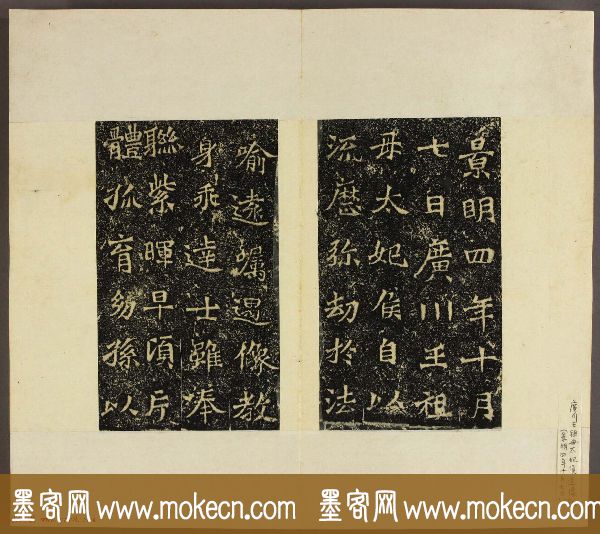 景明四年十月
七日廣川王祖
母太妃侯自以
流歷弥劫於法
喻遠囑遇像教
身乖達士雖奉
聯紫暉早頃片
體孤育幼孫以
廣川王祖母太妃侯造
景明四年十
墨客网 www.mokecn.com 墨客网 www.mokecn.com